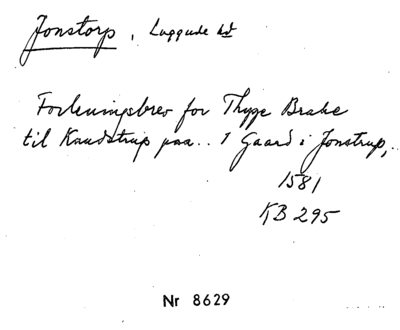 Jonstorp, Luggude hd
Forleningsbrev for Thyge Brahe
til Knudstrup paa.. 1 Gaard i Jonstrup,.
1581
KB 295
Nr 8629